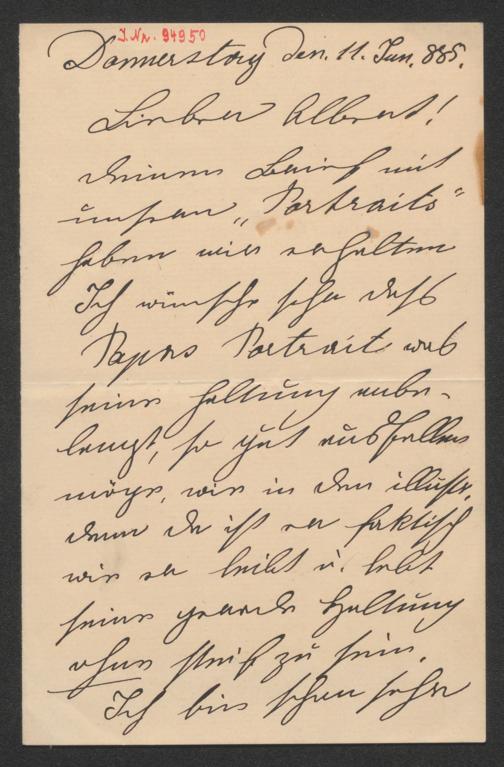 J. Nr. 94950
Donnerstag den. 11. Jun. 885.
Lieber Albert!
deinen Brief mit
unseren „Portraits“
haben wir erhalten
Ich wünsche sehr daß
Papas Portrait was
seine Haltung anbe-
langt, so gut ausfallen
möge, wie in den illustr.
denn da ist er faktisch
wie er leibt u. lebt
seine gerade Haltung
ohne steif zu sein.
Ich bin schon sehr